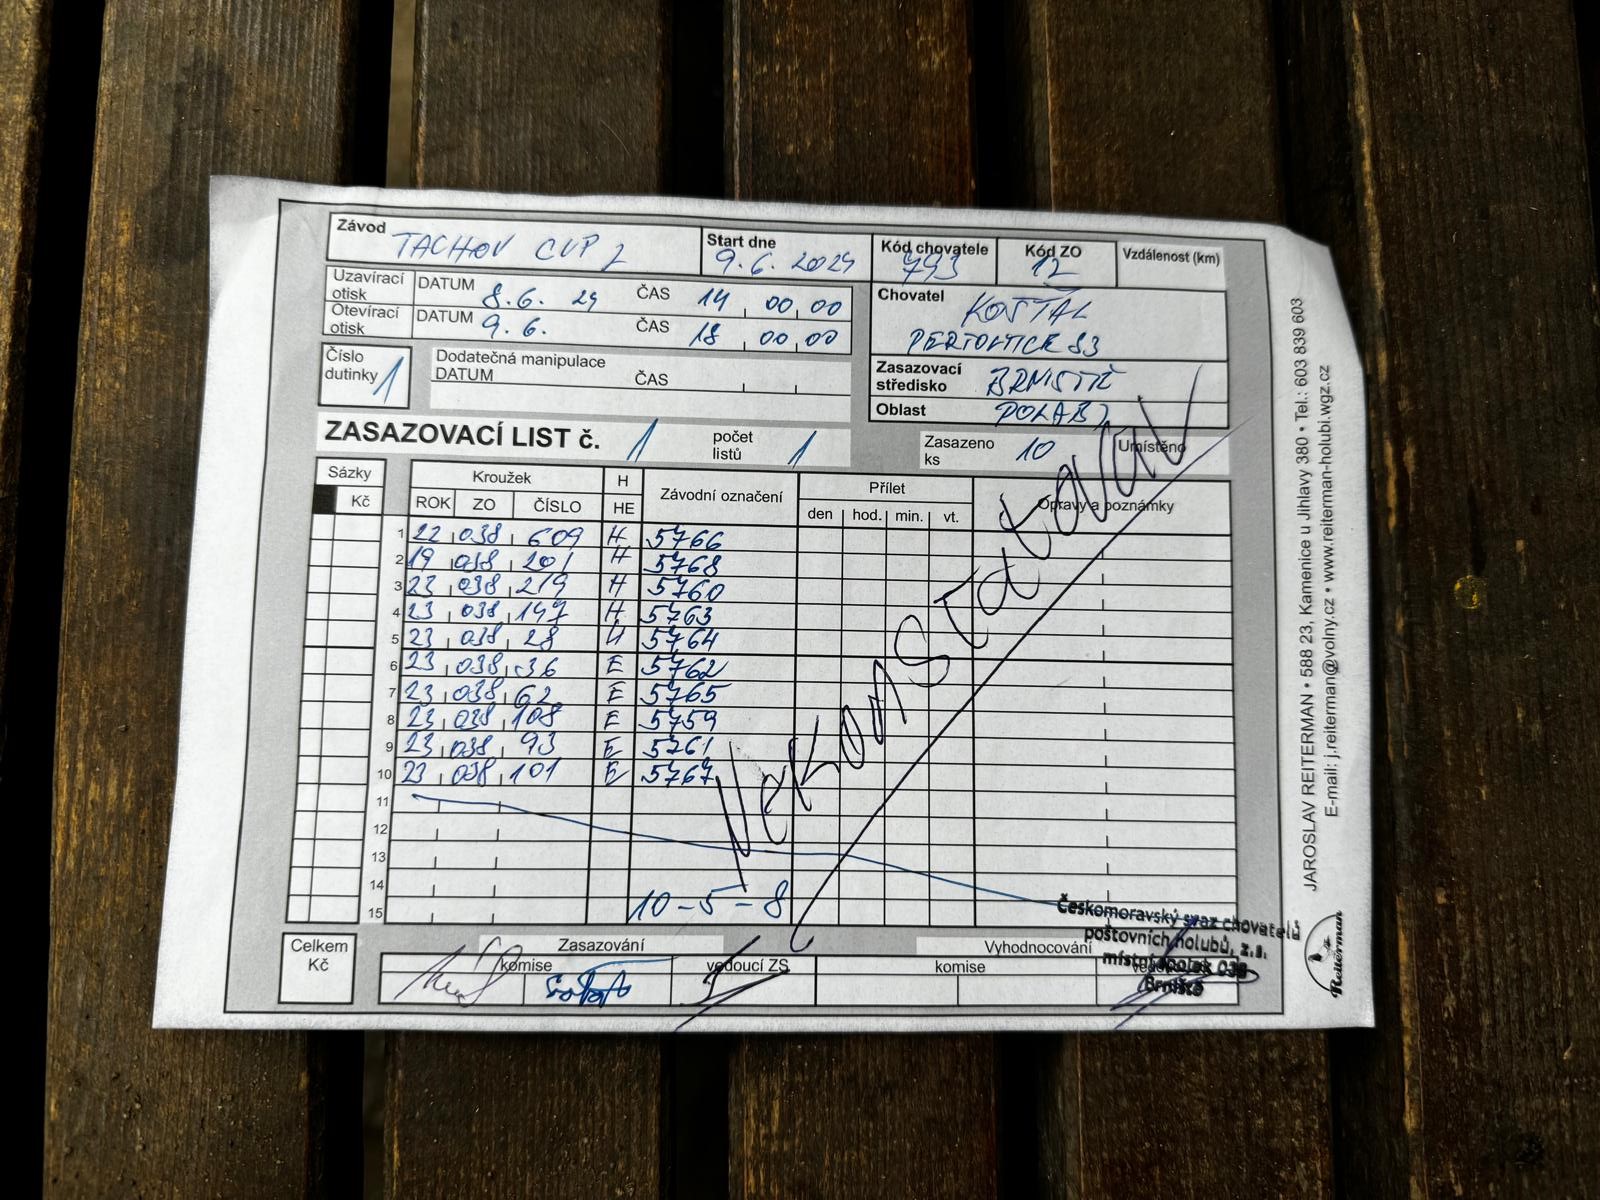 Závod TACHOV CUP 2 Start dne 9.6.2024 Kód chovatele 793 Kód ZO 12 Vzdálenost (km)
Uzavírací otisk DATUM 8.6. 24 ČAS 14 00 00
Otevírací otisk DATUM 9.6. ČAS 18 00 00
Chovatel KOŠŤÁL
PERTOLTICE 83
Číslo dutinky 1 Dodatečná manipulace
DATUM ČAS
Zasazovací středisko BRNIŠTĚ
Oblast POLABÍ
ZASAZOVACÍ LIST č. 1 počet listů 1 Zasazeno ks 10 Umístěno
Sázky Kroužek H Závodní označení Přílet Opravy a poznámky
Kč ROK ZO ČÍSLO HE den hod. min. vt.
1 22 038 609 H 5766
2 19 038 201 H 5768
3 23 038 219 H 5760
4 23 038 147 H 5763
5 23 038 28 H 5764
6 23 038 36 E 5762
7 23 038 62 E 5765
8 23 038 108 E 5759
9 23 038 93 E 5761
10 23 038 101 E 5767
11
12
13
14
15
10-5-8
Nekonstatoval
Celkem Kč Zasazování Vyhodnocování
komise vedoucí ZS komise
Českomoravský svaz chovatelů
poštovních holubů, z.s.
místní spolek 038
Brniště
JAROSLAV REITERMAN • 588 23, Kamenice u Jihlavy 380 • Tel.: 603 839 603
E-mail: j.reiterman@volny.cz • www.reiterman-holubi.wgz.cz
Reiterman